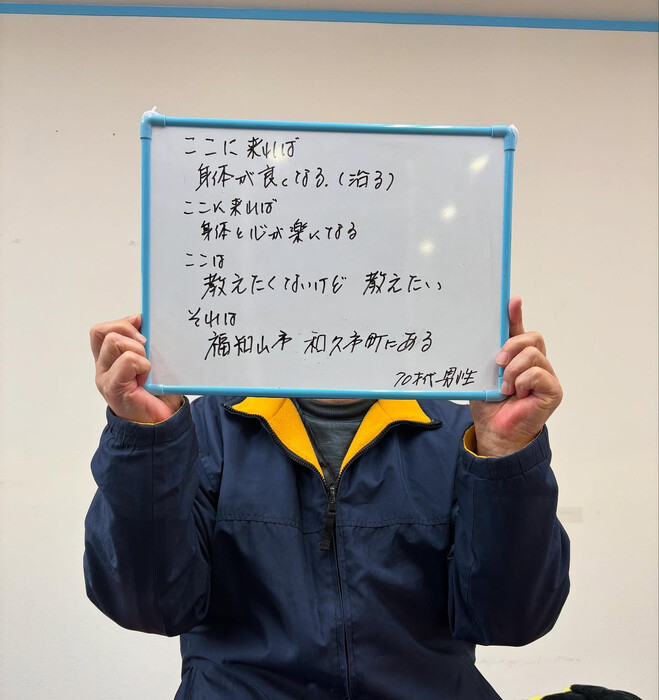 ここに来れば
身体が良くなる.(治る)
ここに来れば
身体と心が楽になる
ここは
教えたくないけど 教えたい
それは
福知山市 和久市町にある
70才代男性